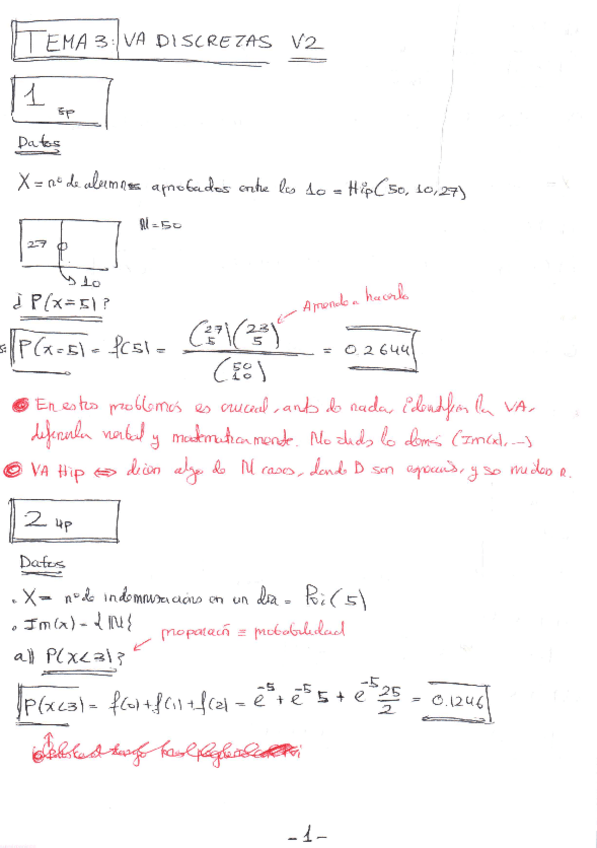 TEMA 3: VA DISCRETAS V2
1 5p
Datos
X = nº de alumnos aprobados entre los 10 = Hip(50, 10, 27)
27 N=50
10
¿P(X=5)?
Aprende a hacerlo
P(X=5) = f(5) = (27 5)(23 5) / (50 10) = 0.2644
En estos problemas es crucial, antes de nada, identificar la VA,
definirla verbal y matemáticamente. No olvides lo demás (Im(x), ...)
VA Hip ⇔ dicen algo de N casos, donde D son especiales, y se miden n.
2 4p
Datos
. X = nº de indemnizaciones en un día = Poi(5)
. Im(x) = {ℕ}
proporción ≡ probabilidad
a) P(X<3)?
P(X<3) = f(0)+f(1)+f(2) = e^-5 + e^-5 5 + e^-5 25/2 = 0.1246
-1-